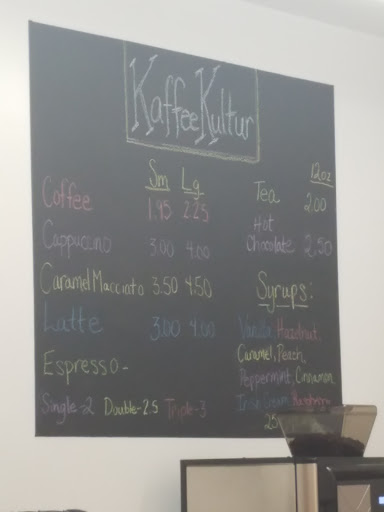 Kaffee Kultur
Sm Lg
Coffee 1.95 2.25
Cappuccino 3.00 4.00
Caramel Macciato 3.50 4.50
Latte 3.00 4.00
Espresso-
Single-2 Double-2.5 Triple-3
12oz
Tea 2.00
Hot
Chocolate 2.50
Syrups:
Vanilla, Hazelnut,
Caramel, Peach,
Peppermint, Cinnamon,
Irish Cream,